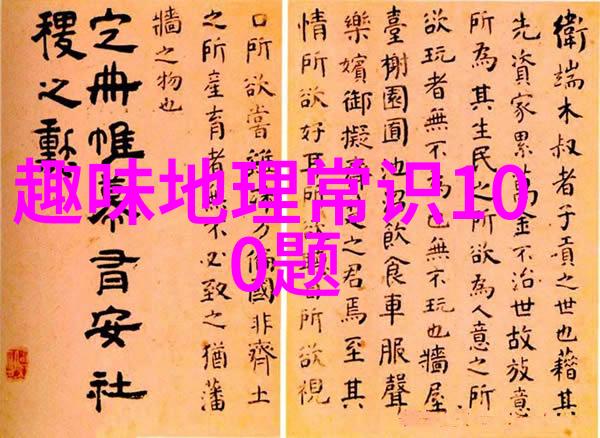 趣味地理常识10
0题
衛端木叔者子貢之世也藉其
先資家累萬金不治世故放意
所為其生民之所欲為人意之所
欲玩者無不為也無不玩也牆屋
臺榭園囿池沼飲食車服聲
樂嬪御擬之君焉至其
情所欲好耳所欲所欲視
口所欲嘗雖殊方偏國非齊土
之所產育者無不必致之猶藩
牆之物也
定冊帷幕有安社
稷之勳